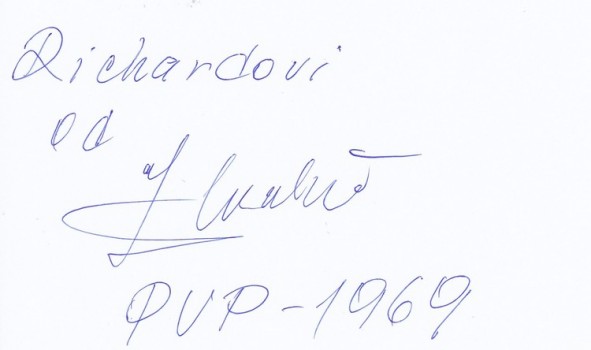 Richardovi
od
PVP-1969